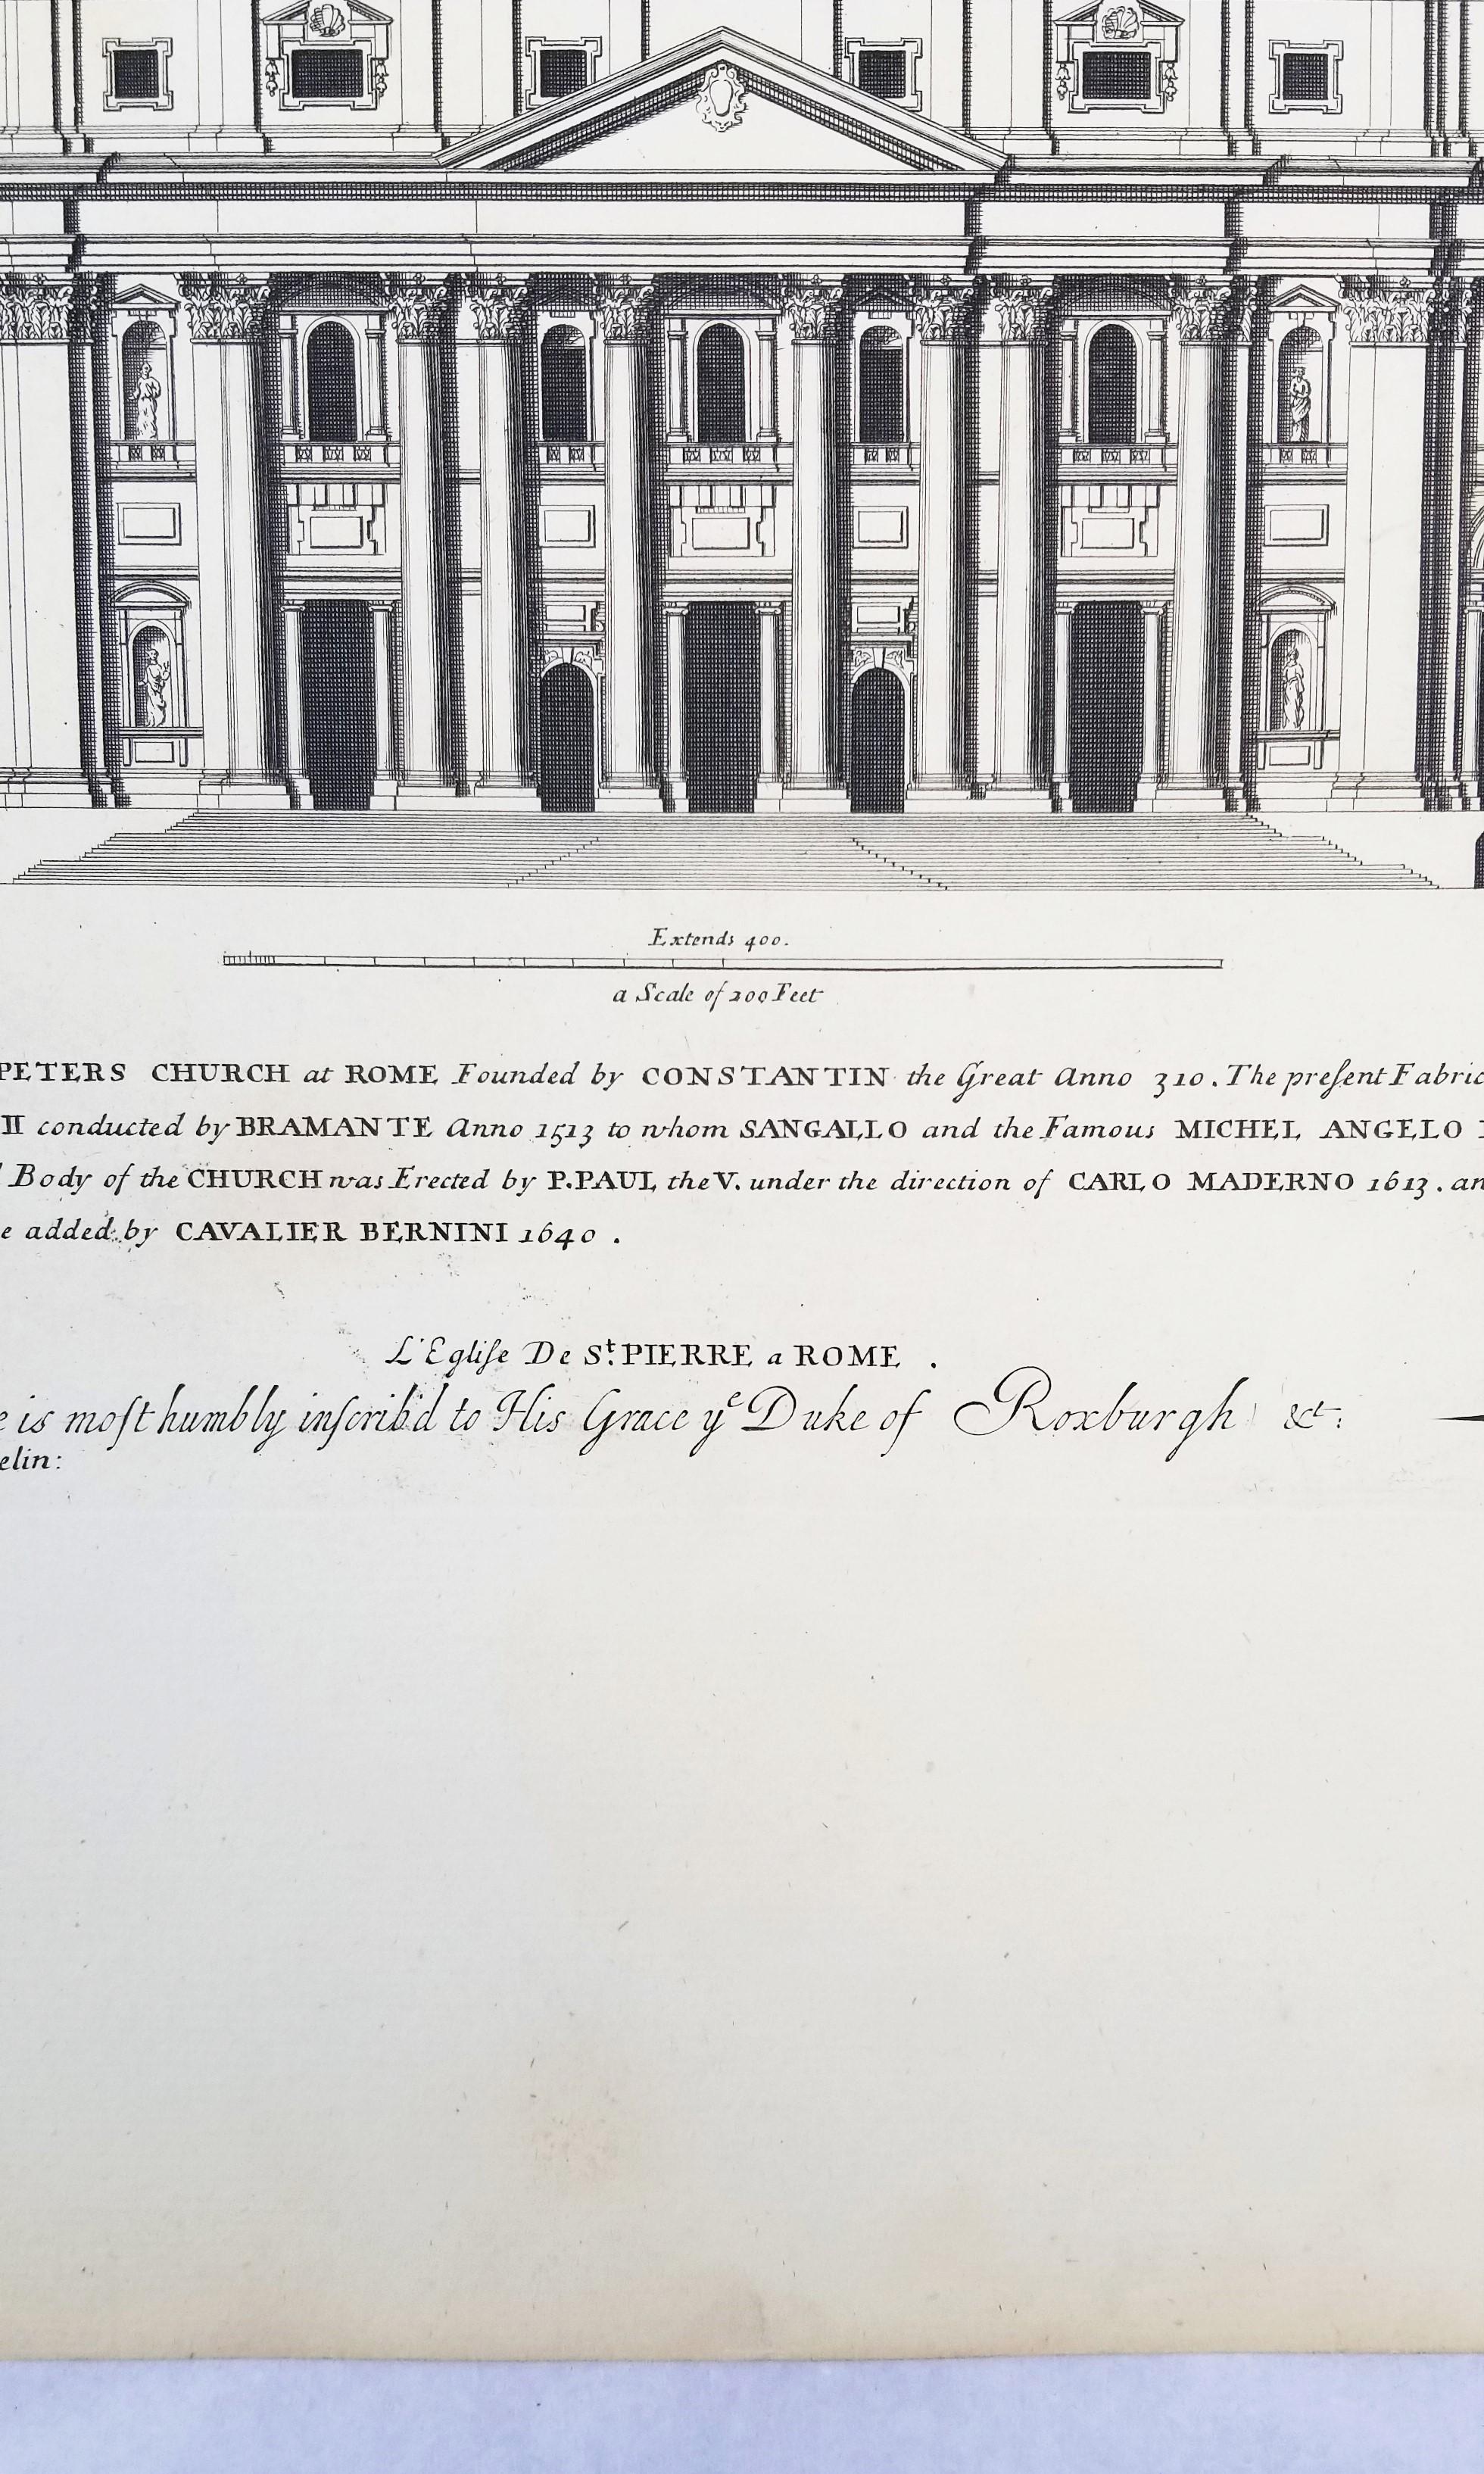 Extends 400.
a Scale of 200 Feet
PETERS CHURCH at ROME Founded by CONSTANTIN the Great Anno 310. The preſent Fabric
II conducted by BRAMANTE Anno 1513 to whom SANGALLO and the Famous MICHEL ANGELO
Body of the CHURCH was Erected by P. PAUL the V. under the direction of CARLO MADERNO 1613. an
e added by CAVALIER BERNINI 1640.
L'Egliſe De St. PIERRE a ROME.
e is moſt humbly inſcrib'd to His Grace ye Duke of Roxburgh &c:
elin: